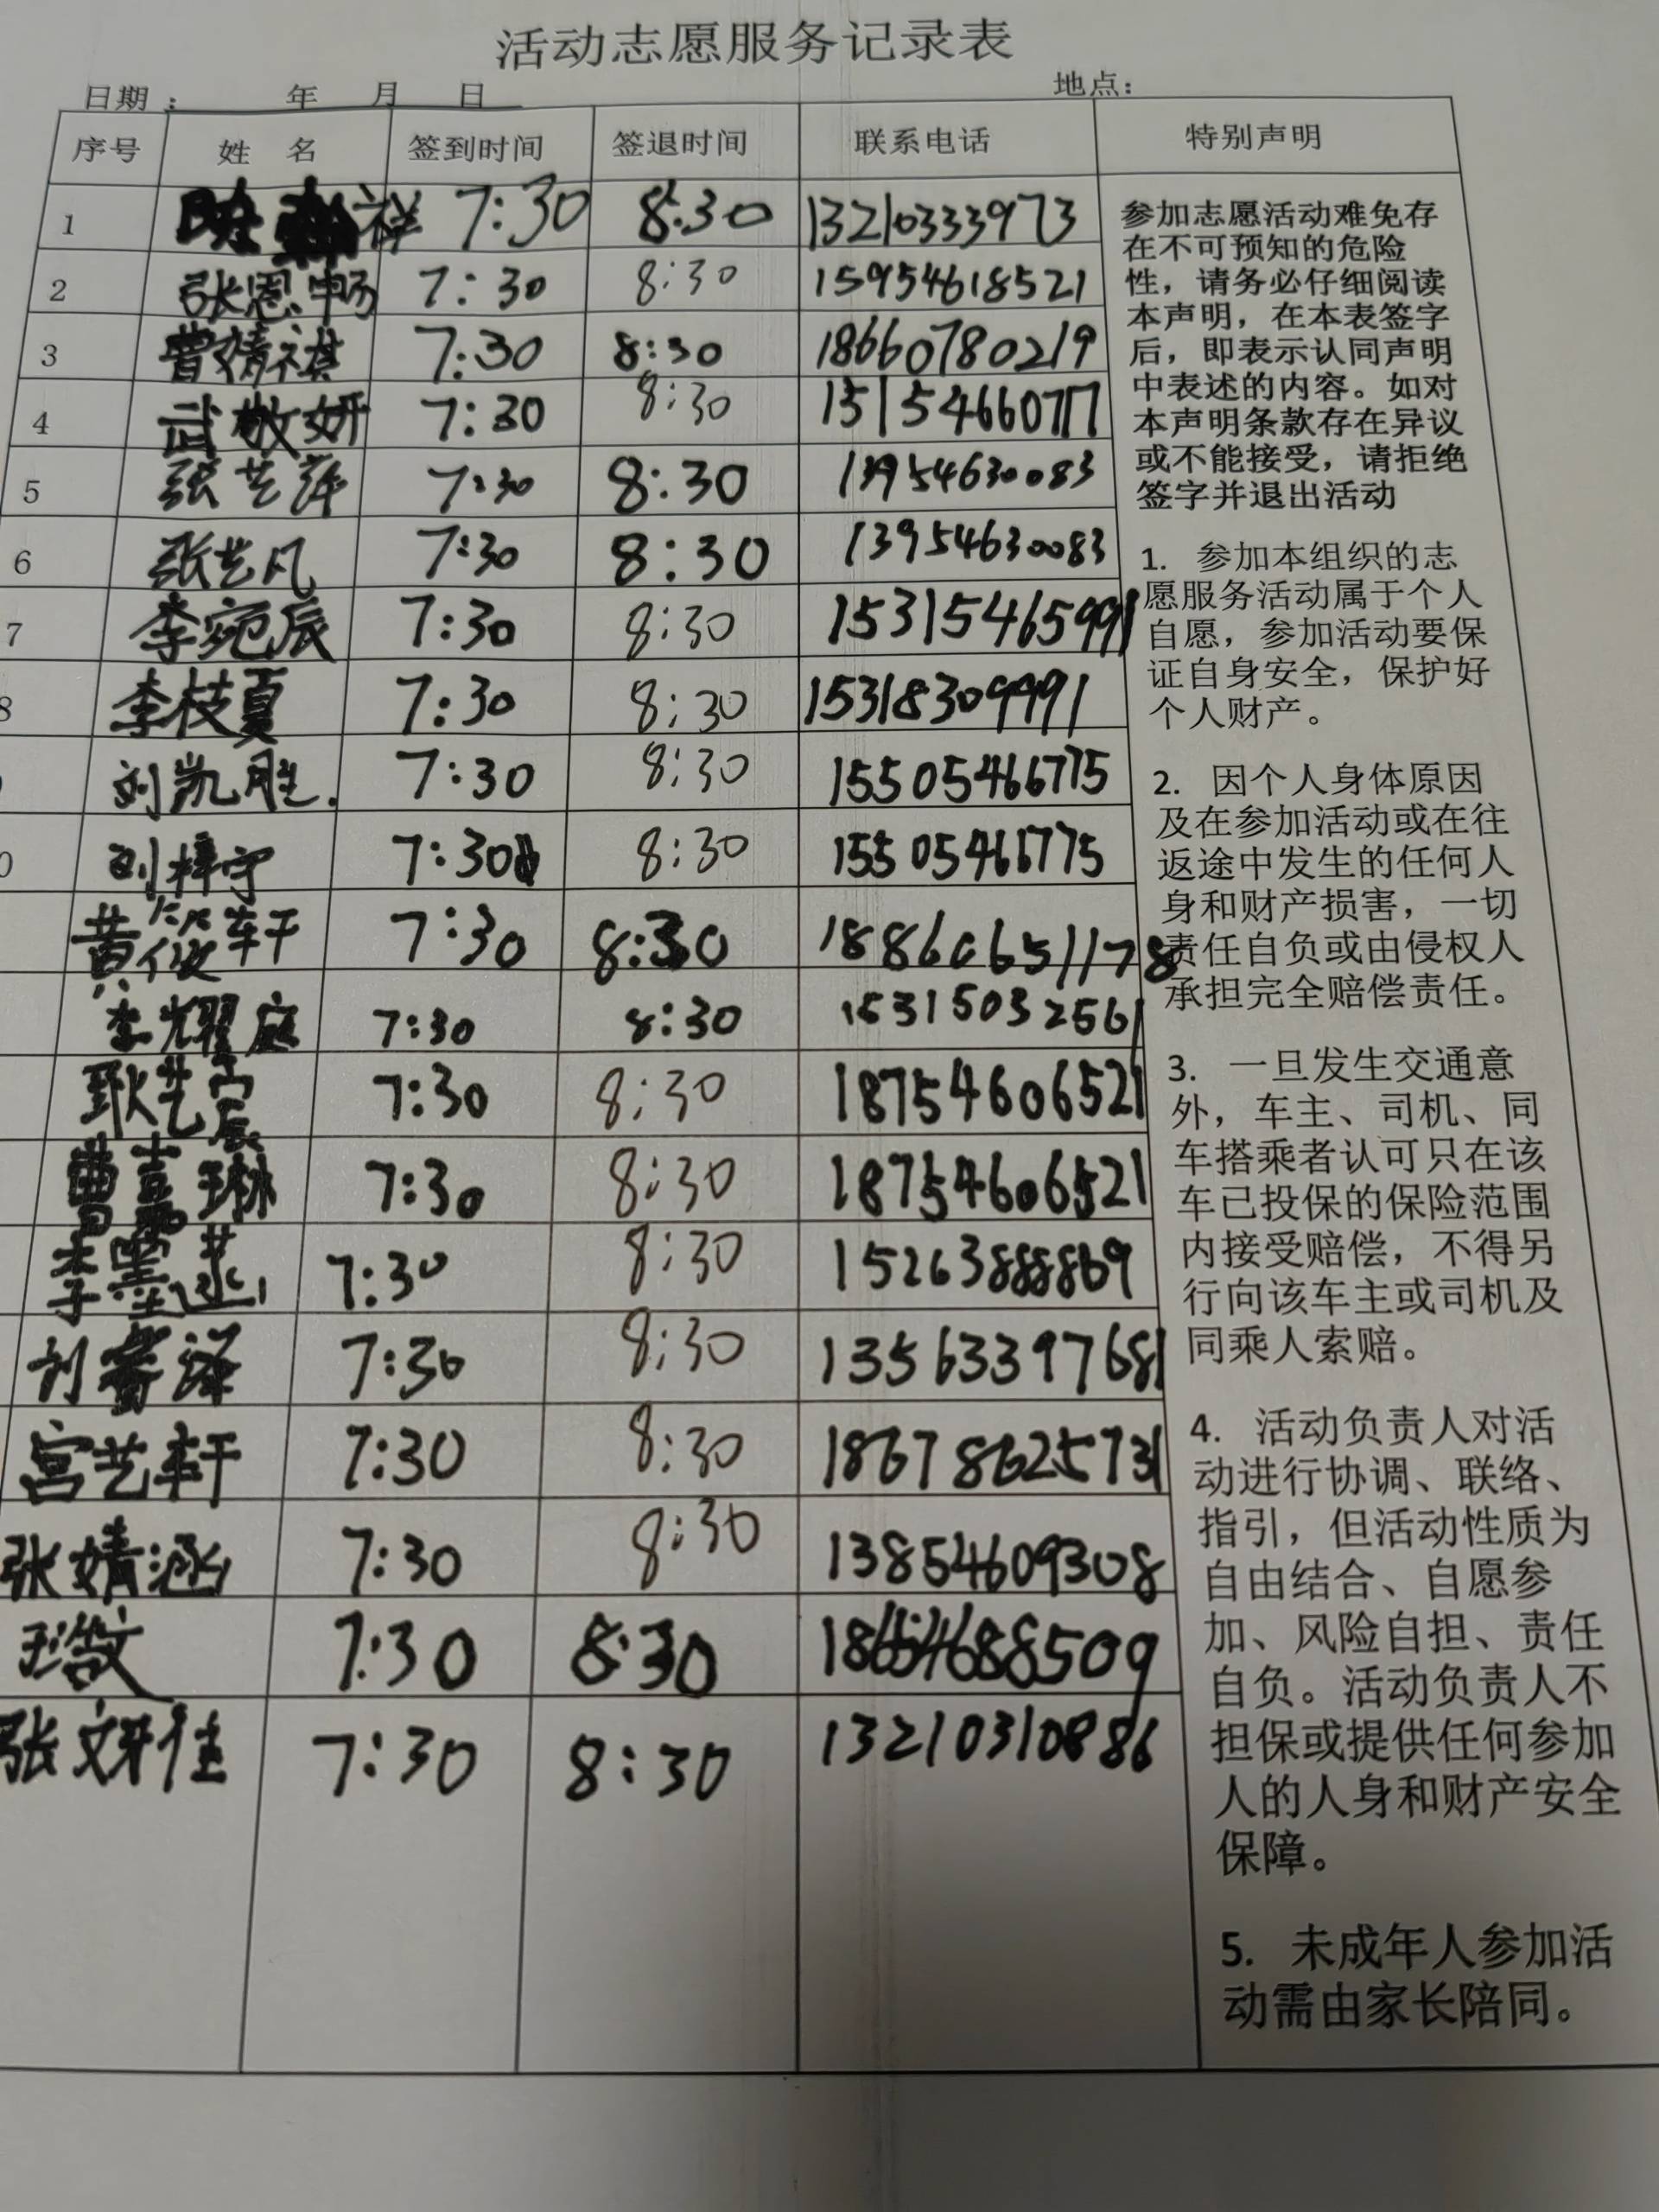 活动志愿服务记录表
日期： 年 月 日 地点：
序号 姓 名 签到时间 签退时间 联系电话 特别声明
1 祥 7:30 8:30 13210333973
2 张恩畅 7:30 8:30 15954618521
3 曹婧祺 7:30 8:30 18660780219
4 武敬妍 7:30 8:30 15154660777
5 张艺萍 7:30 8:30 13954630083
6 张艺凡 7:30 8:30 13954630083
7 李宛辰 7:30 8:30 15315465991
8 李枝夏 7:30 8:30 15318309991
刘凯胜. 7:30 8:30 15505466775
0 刘梓宁 7:30 8:30 15505466775
黄筱轩 7:30 8:30 18860651178
李耀庭 7:30 8:30 15315032561
耿艺宸 7:30 8:30 18754606521
曹嘉琳 7:30 8:30 18754606521
李墨 7:30 8:30 15263888869
刘睿泽 7:30 8:30 13563397681
宫艺轩 7:30 8:30 18678625731
张婧涵 7:30 8:30 13854609308
7:30 8:30 18654688509
张妍佳 7:30 8:30 13210310886
参加志愿活动难免存
在不可预知的危险
性，请务必仔细阅读
本声明，在本表签字
后，即表示认同声明
中表述的内容。如对
本声明条款存在异议
或不能接受，请拒绝
签字并退出活动
1. 参加本组织的志
愿服务活动属于个人
自愿，参加活动要保
证自身安全，保护好
个人财产。
2. 因个人身体原因
及在参加活动或在往
返途中发生的任何人
身和财产损害，一切
责任自负或由侵权人
承担完全赔偿责任。
3. 一旦发生交通意
外，车主、司机、同
车搭乘者认可只在该
车已投保的保险范围
内接受赔偿，不得另
行向该车主或司机及
同乘人索赔。
4. 活动负责人对活
动进行协调、联络、
指引，但活动性质为
自由结合、自愿参
加、风险自担、责任
自负。活动负责人不
担保或提供任何参加
人的人身和财产安全
保障。
5. 未成年人参加活
动需由家长陪同。